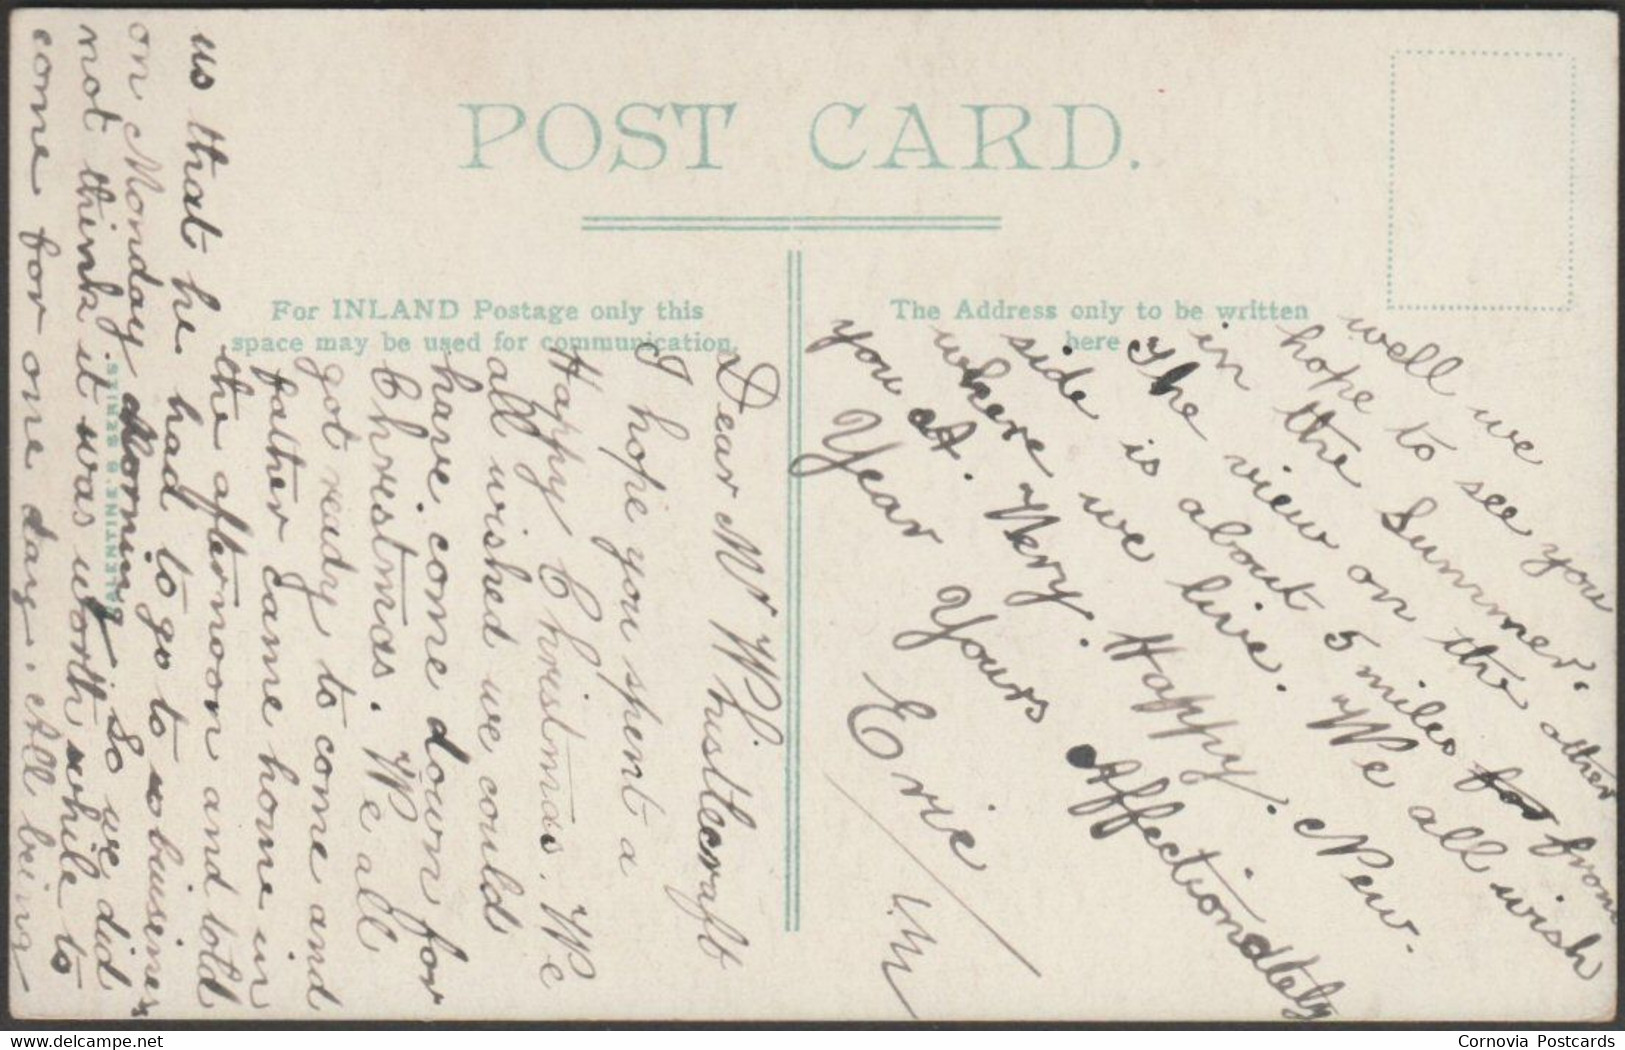 POST CARD.
For INLAND Postage only this
space may be used for communication.
The Address only to be written
here
VALENTINE'S SERIES
Dear Mr Whustlecraft
I hope you spent a
Happy Christmas. We
all wished we could
have come down for
Christmas. We all
got ready to come and
father came home in
the afternoon and told
us that he had to go to buisiness
on Monday Morning So we did
not think it was worth while to
come for one day. All being
well we
hope to see you
in the Summer.
The view on the other
side is about 5 miles from
where we live. We all wish
you A. Very. Happy. New.
Year Yours Affectiondtely
Eric
Cornovia Postcards